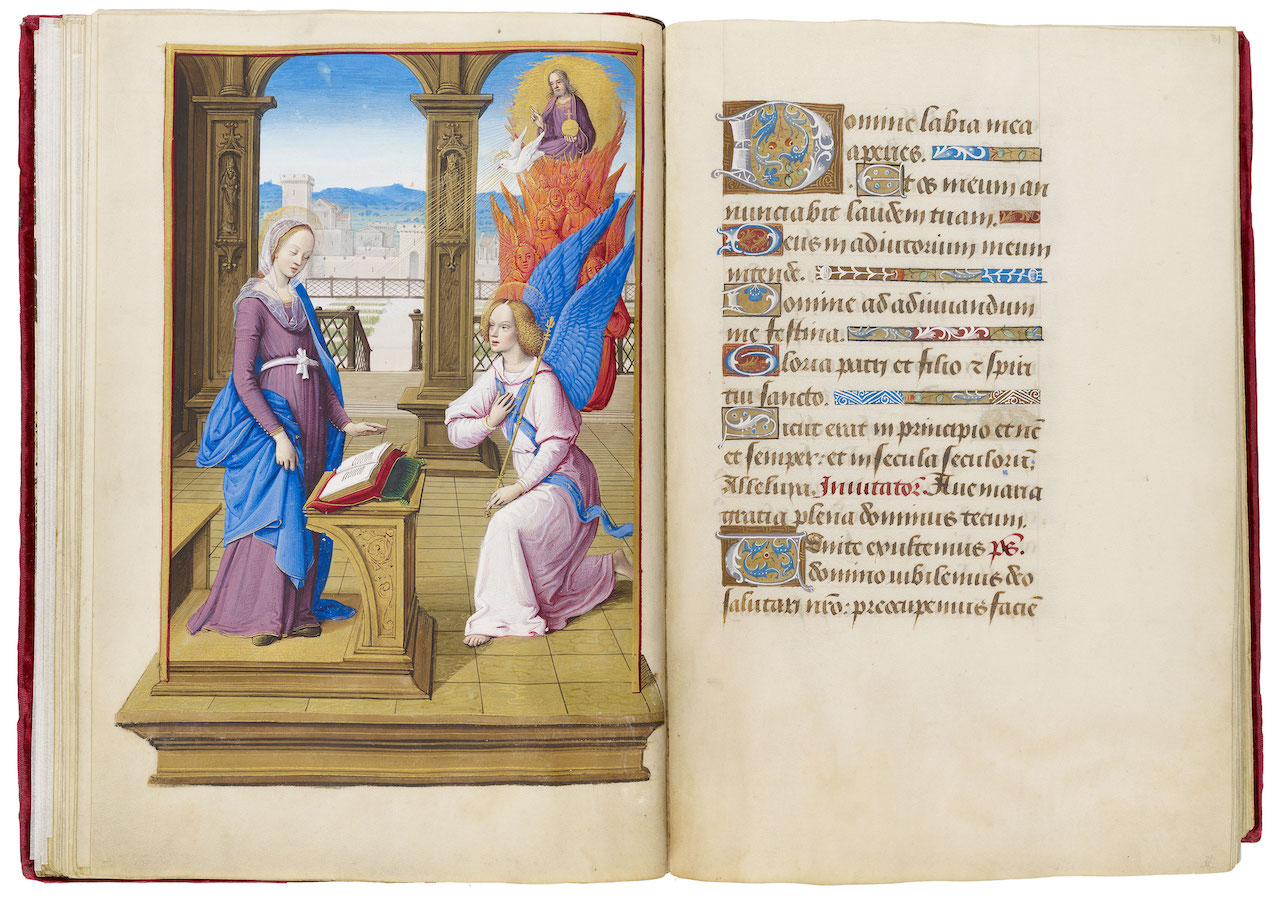 Domine labia mea
aperies.
Et os meum an
nunciabit laudem tuam.
Deus in adiutorium meum
intende.
Domine ad adiuuandum
me festina.
Gloria patri et filio ⁊ spiri
tui sancto.
Sicut erat in principio et nūc
et semper: et in secula seculorū:
Alleluya. Inuitator̄. Aue maria
gratia plena dominus tecum.
Uenite exultemus ps̄.
domino iubilemus deo
salutari nr̄o: preocupemus faciē